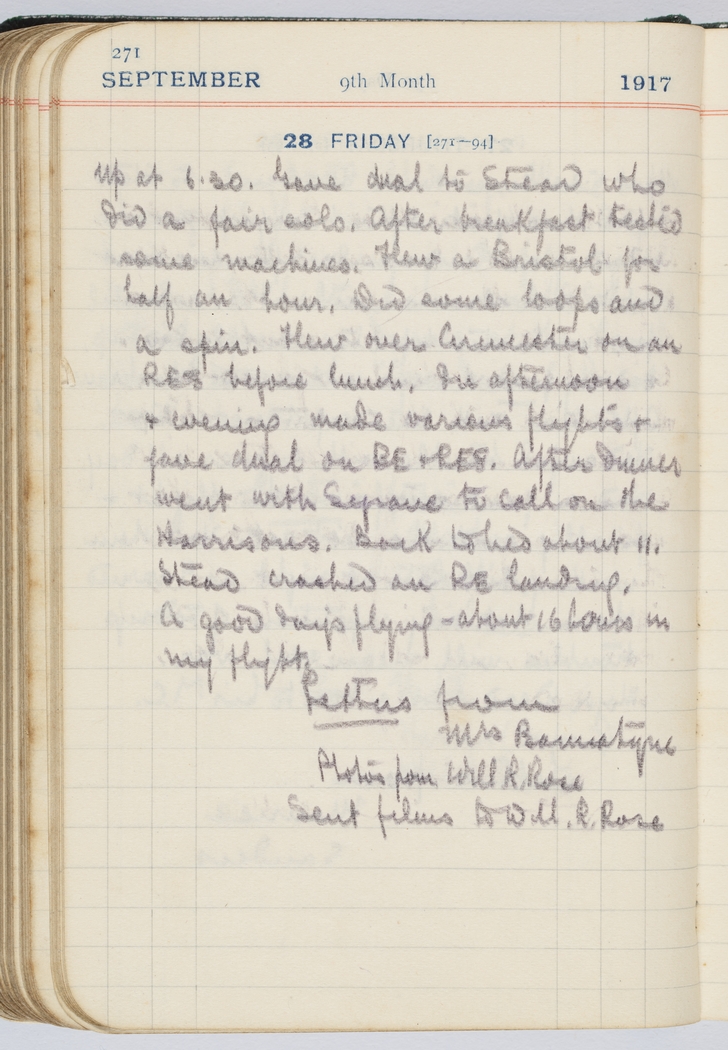 271
SEPTEMBER 9th Month 1917
28 FRIDAY [271-94]
Up at 6.30. Gave dual to Stead who
did a fair solo. After breakfast tested
some machines. Flew a Bristol for
half an hour. Did some loops and
a spin. Flew over Cirencester on an
RE8 before lunch. In afternoon
+ evening made various flights +
gave dual on BE + RE8. After dinner
went with to call on the
Harrisons. Back to bed about 11.
Stead crashed an RE landing.
A good days flying - about 16 hours in
my flight.
Letters from
Mrs Bannatyne
Photos from Will R. Rose
Sent films to Will. R. Rose